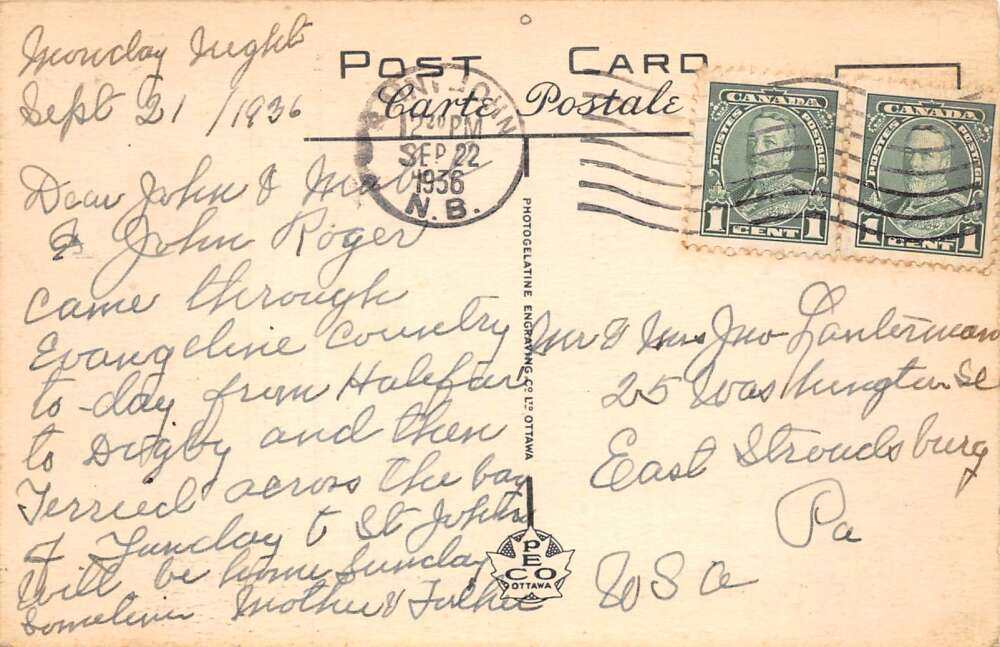 Monday Night
Sept 21 / 1936
Dear John & Mar
& John Roger
came through
Evangeline Country
to-day from Halifax
to Digby and then
Ferried across the bay
of Funday to St Johns
Will be home Sunday
sometime Mother & Father
POST CARD
Carte Postale
SAINT JOHN
12 30 PM
SEP 22
1936
N.B.
CANADA
POSTES POSTAGE
1 CENT 1
CANADA
POSTES POSTAGE
1 CENT 1
PHOTOGELATINE ENGRAVING CO LTD OTTAWA
Mr & Mrs Jno Lanterman
25 Washington St
East Stroudsburg
Pa
USA
PECO
OTTAWA